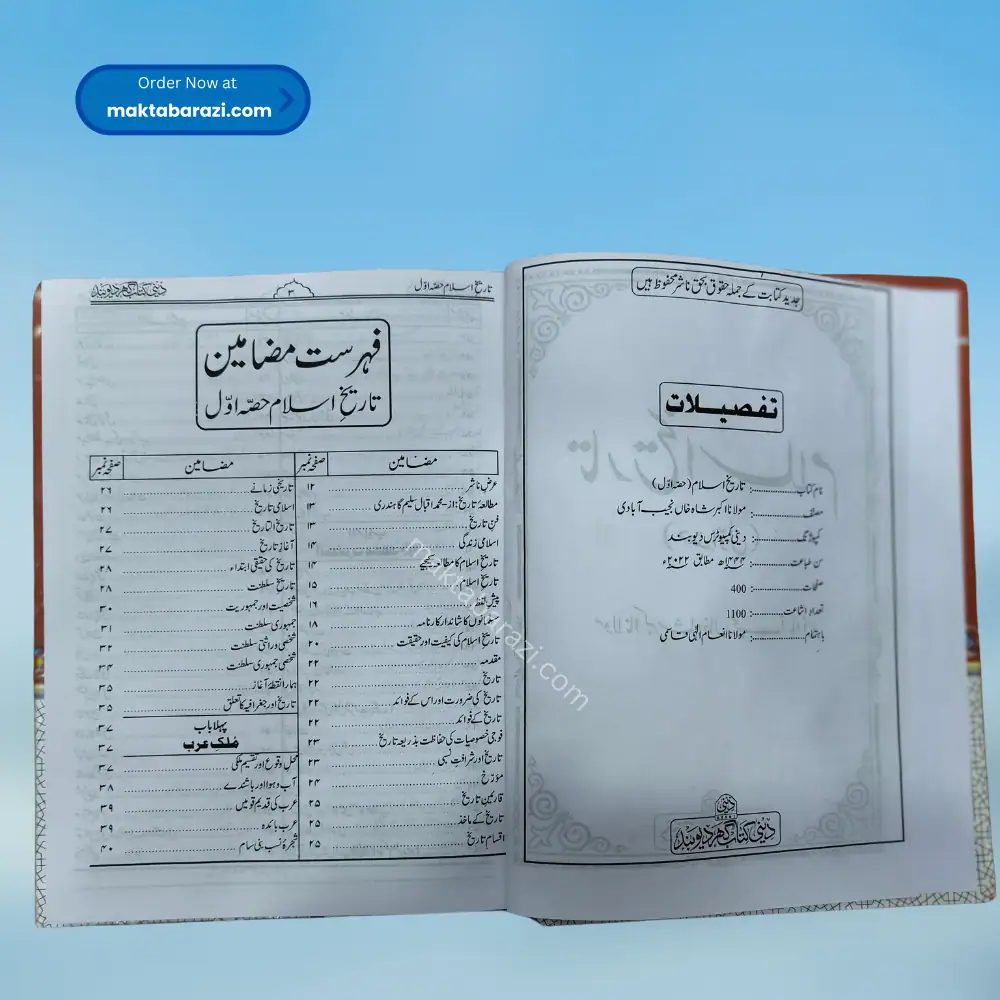 Order Now at
maktabarazi.com
جدید کتابت کے جملہ حقوق بحق ناشر محفوظ ہیں
تفصیلات
نام کتاب ............: تاریخ اسلام (حصہ اوّل)
مصنف ............: مولانا اکبر شاہ خاں نجیب آبادی
کمپوزنگ ............: دینی کمپیوٹرس دیوبند
سن طباعت ............: ۱۴۴۴ھ مطابق ۲۰۲۲ء
صفحات ............: 400
تعداد اشاعت ............: 1100
باہتمام ............: مولانا انعام الٰہی قاسمی
دینی کتاب گھر دیوبند
تاریخ اسلام حصہ اوّل
۳
دینی کتاب گھر دیوبند
فہرست مضامین
تاریخ اسلام حصّہ اوّل
مضامین صفحہ نمبر
عرض ناشر ۱۲
مطالعۂ تاریخ: از-محمد اقبال سلیم گاہندری ۱۳
فن تاریخ ۱۳
اسلامی زندگی ۱۴
تاریخ اسلام کا مطالعہ کیجیے ۱۴
تاریخ اسلام ۱۵
پیش لفظ ۱۶
مسلمانوں کا شاندار کارنامہ ۱۸
تاریخ اسلام کی کیفیت اور حقیقت ۲۰
مقدمہ ۲۲
تاریخ ۲۲
تاریخ کی ضرورت اور اس کے فوائد ۲۲
تاریخ کے فوائد ۲۲
فوجی خصوصیات کی حفاظت بذریعہ تاریخ ۲۳
تاریخ اور شرافت نسبی ۲۳
مؤرخ ۲۴
قارئین تاریخ ۲۵
تاریخ کے ماخذ ۲۵
اقسام تاریخ ۲۵
مضامین صفحہ نمبر
تاریخی زمانے ۲۶
اسلامی تاریخ ۲۶
تاریخ التاریخ ۲۷
آغاز تاریخ ۲۷
تاریخ کی حقیقی ابتداء ۲۸
تاریخ سلطنت ۲۸
شخصیت اور جمہوریت ۳۰
جمہوری سلطنت ۳۱
شخصی وراثتی سلطنت ۳۲
شخصی جمہوری سلطنت ۳۴
ہمارا نقطۂ آغاز ۳۵
تاریخ اور جغرافیہ کا تعلق ۳۵
پہلا باب ۳۷
مُلک عرب ۳۷
محل وقوع اور تقسیم ملکی ۳۷
آب و ہوا اور باشندے ۳۸
عرب کی قدیم قومیں ۳۹
عرب بائدہ ۳۹
شجرۂ نسب بنی سام ۴۰
maktabarazi.com